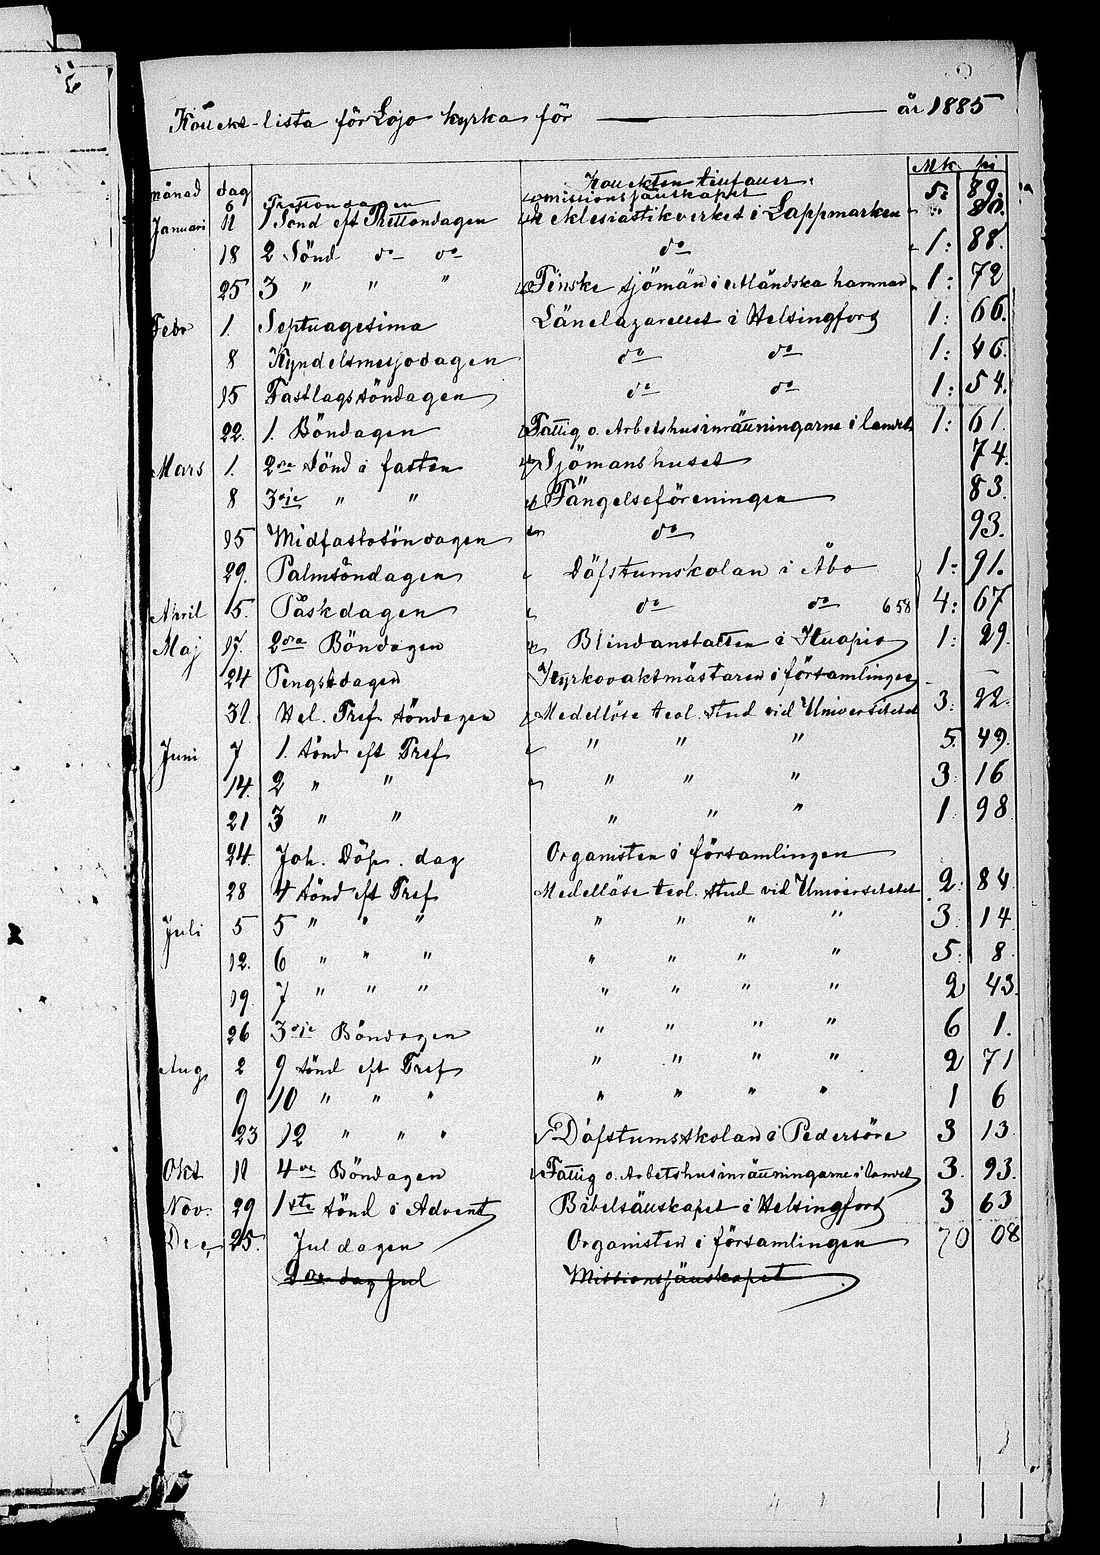 Kollekt-lista för Lojo kyrka för — år 1885
månad dag Kollekten tillfaller: Mk. pi
6 Trettondagen Missionssällskapet 5: 89.
Januari 11 1 Sönd eft Trettondagen Eklesiastikverket i Lappmarken 80.
18 2 Sönd do do do 1: 88.
25 3 " " " Finske sjömän i utländska hamnar 1: 72
Febr 1. Septuagesima Länelazarettet i Helsingfors 1: 66.
8 Kyndelsmessodagen do do 1: 46.
15 Fastlagssöndagen do do 1: 54.
22. 1. Böndagen Fattig o. Arbetshusinrättningarne i landet 1: 61.
Mars 1. 2dra Sönd i fasten Sjömanshuset 74.
8 3dje " " Fängelseföreningen 83.
15 Midfastosöndagen do 93.
29. Palmsöndagen Döfstumskolan i Åbo 1: 91.
April 5. Påskdagen do do 658 4: 67
Maj 17. 2dra Böndagen Blindanstalten i Kuopio 1: 29.
24 Pingstdagen Kyrkovaktmästaren i församlingen —
31. Hel. Tref söndagen Medellöse teol. stud vid Universitetet 3: 22.
Juni 7 1. sönd eft Tref " " " 5. 49.
14. 2 " " " " " 3: 16
21 3 " " " " " 1: 98
24. Joh. Döp. dag Organisten i församlingen
28 4 sönd eft Tref Medellöse teol. stud vid Universitetet 2: 84
Juli 5 5 " " " " " " " 3. 14
12. 6 " " " " " " " 5: 8
19. 7 " " " " " " " 2 43.
26 3dje Böndagen " " " " 6 1.
Aug. 2 9 sönd eft Tref " " " " 2 71
9 10 " " " " " " " 1 6
23 12 " " " Döfstumskolan i Pedersöre 3 13
Okt 11 4de Böndagen Fattig o. Arbetshusinrättningarne i landet 3. 93.
Nov. 29 1sta sönd i Advent Bibelsällskapet i Helsingfors 3 63
Dec 25. Juldagen Organisten i församlingen 70 08
Dra dag Jul Missionssällskapet